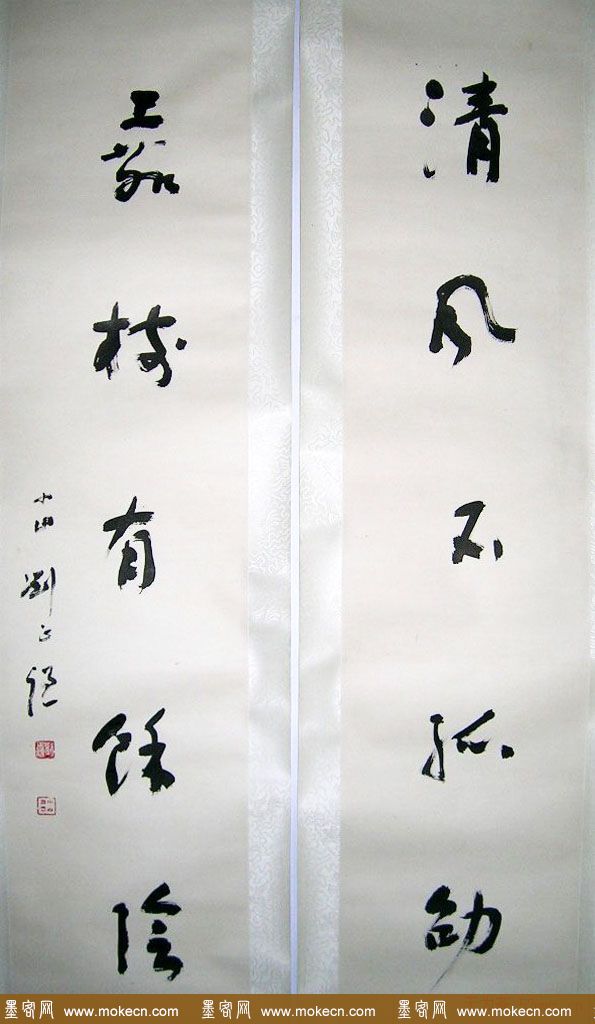 清风不孤劭
嘉樹有餘陰
劉正
墨客网 www.mokecn.com 墨客网 www.mokecn.com 墨客网 www.mokecn.com